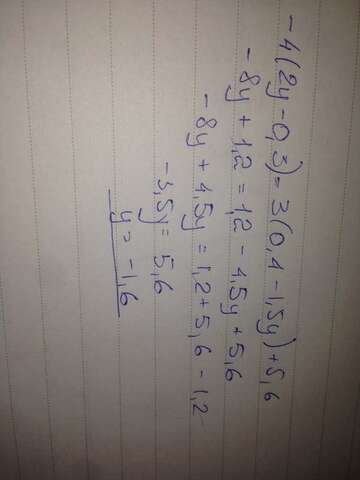 -4(2y-0,3)=3(0,4-1,5y)+5,6
-8y+1,2=1,2-4,5y+5,6
-8y+4,5y=1,2+5,6-1,2
-3,5y=5,6
y=-1,6